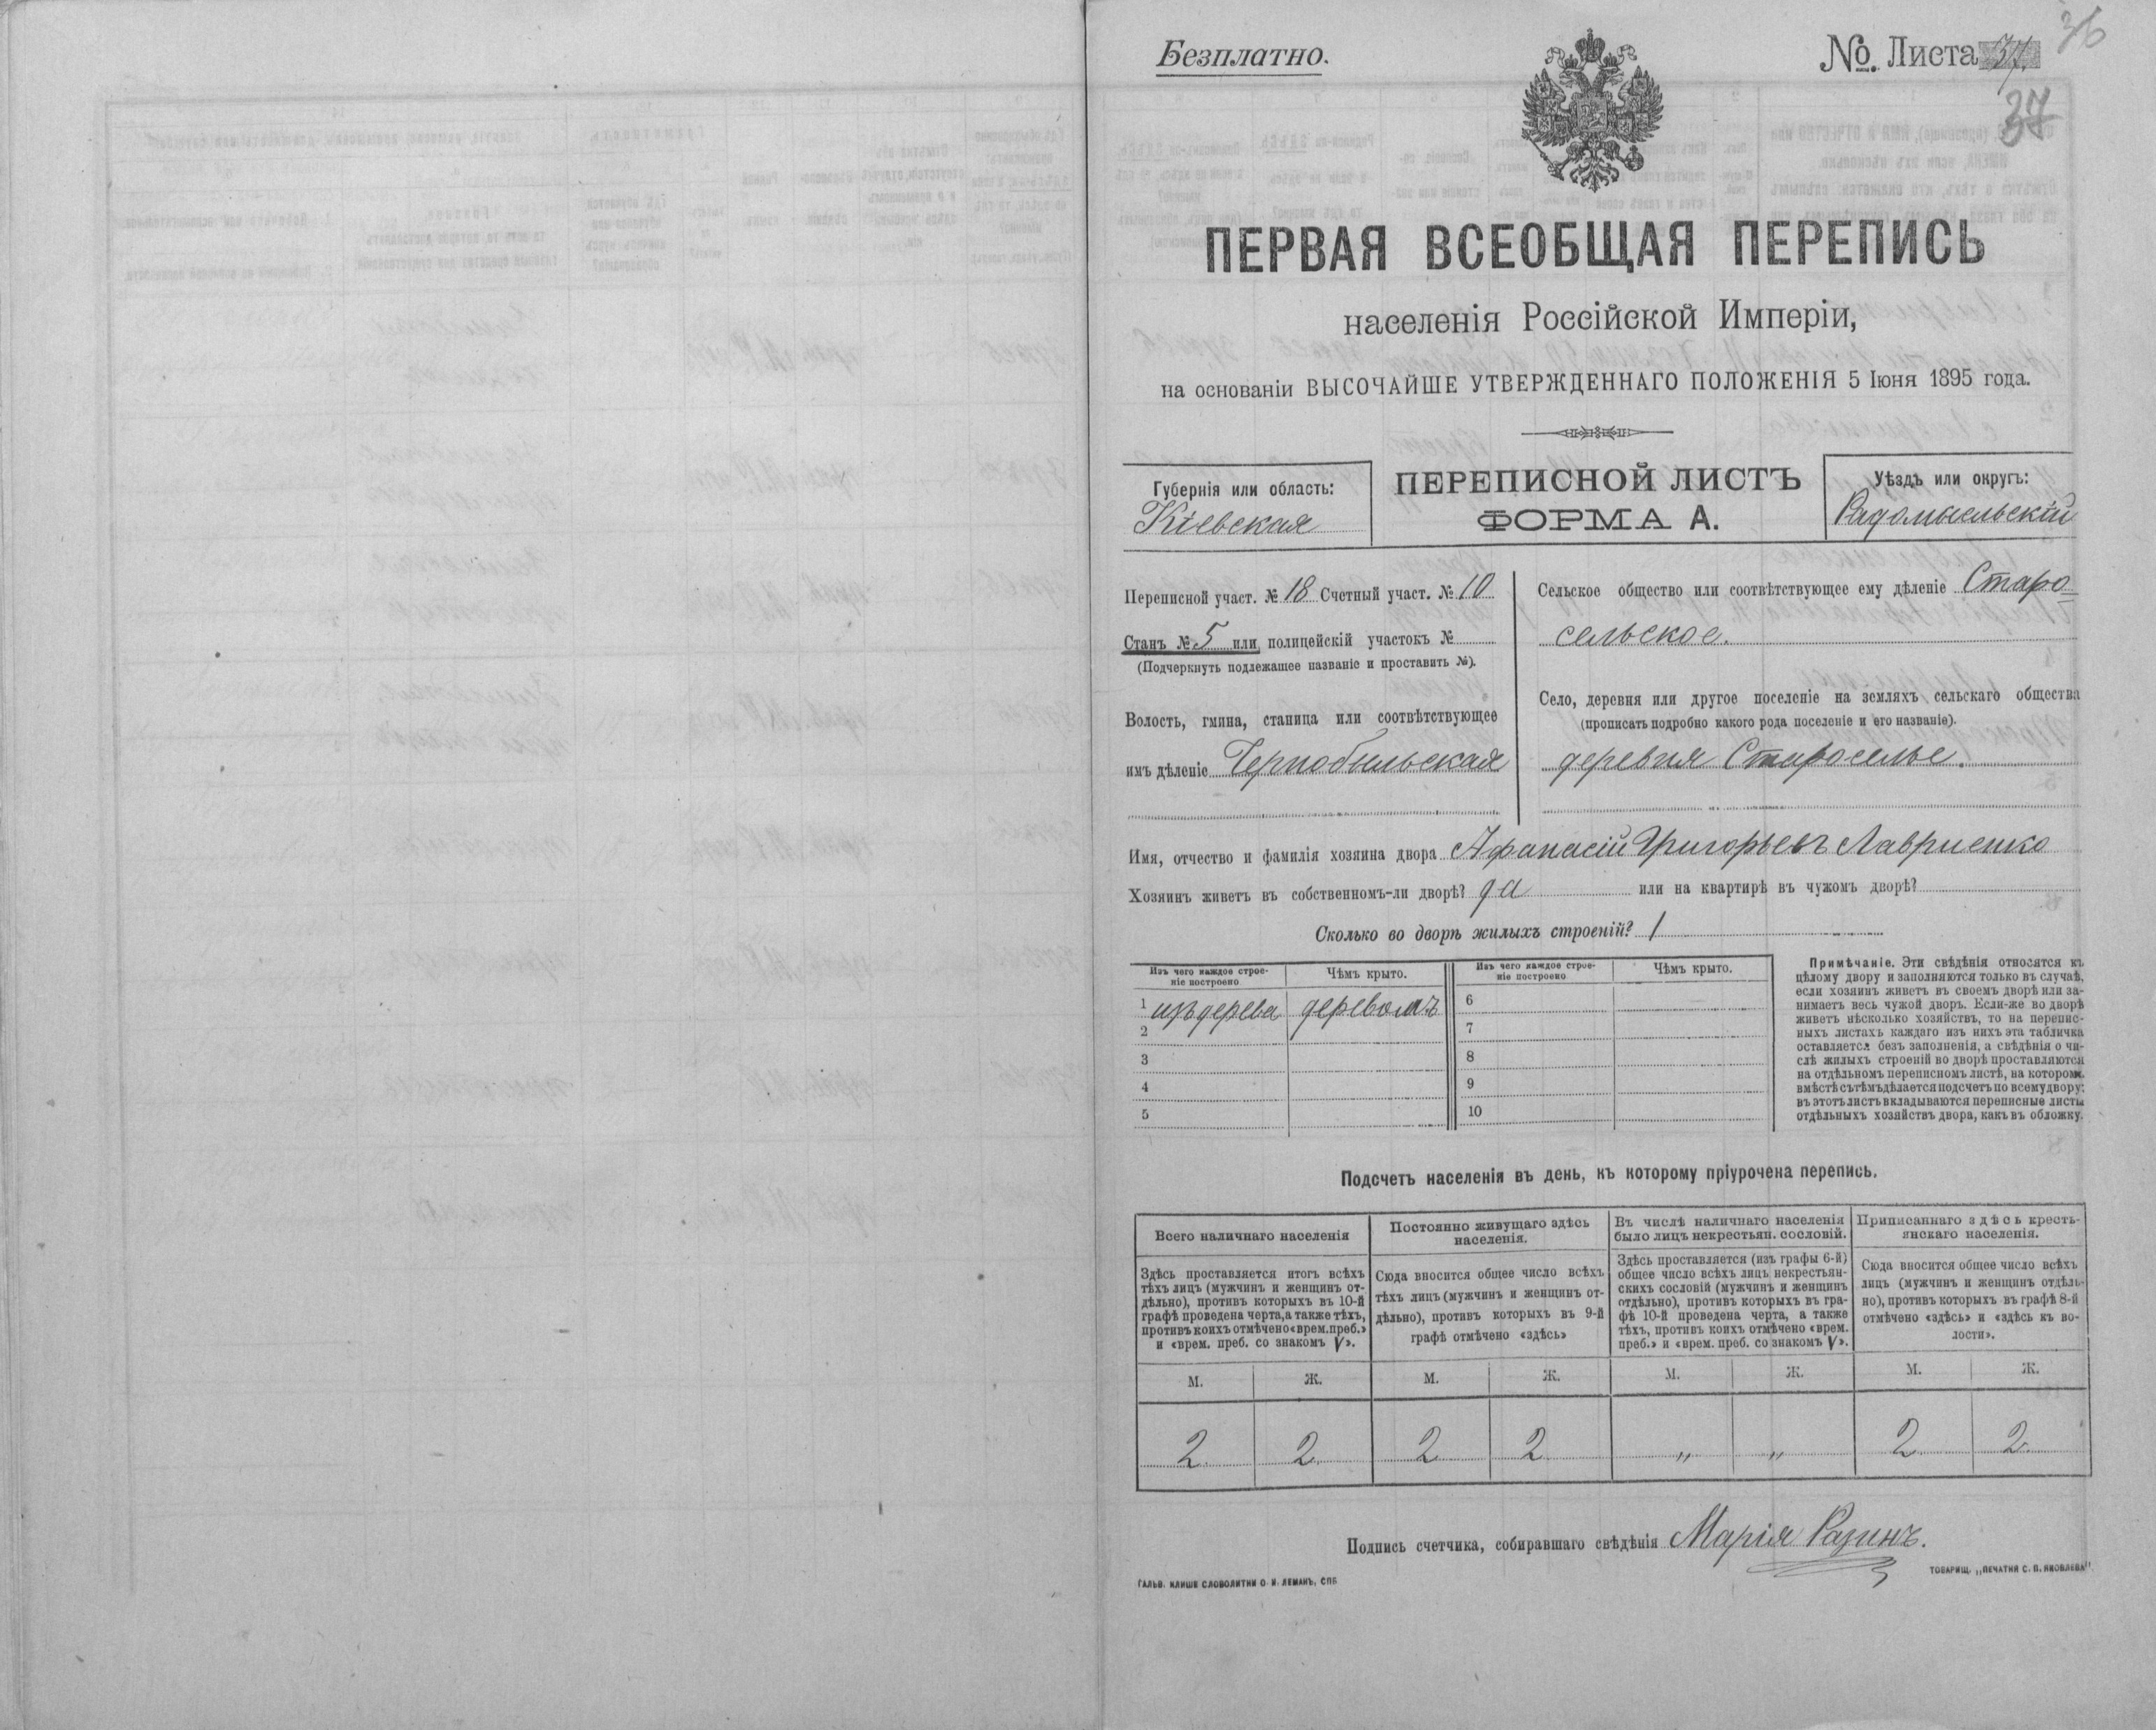 Безплатно.
№ Листа 37.
36
37
ПЕРВАЯ ВСЕОБЩАЯ ПЕРЕПИСЬ
населенія Россійской Имперіи,
на основаніи ВЫСОЧАЙШЕ УТВЕРЖДЕННАГО ПОЛОЖЕНІЯ 5 Іюня 1895 года.
Губернія или область:
Кіевская
ПЕРЕПИСНОЙ ЛИСТЪ
ФОРМА А.
Уѣздъ или округъ:
Радомысльскій
Переписной участ. № 18 Счетный участ. № 10
Станъ № 5 или полицейскій участокъ №
(Подчеркнуть подлежащее названіе и проставить №).
Волость, гмина, станица или соотвѣтствующее
имъ дѣленіе Чернобыльская
Сельское общество или соотвѣтствующее ему дѣленіе Старо
сельское.
Село, деревня или другое поселеніе на земляхъ сельскаго общества
(прописать подробно какого рода поселеніе и его названіе).
деревня Староселье.
Имя, отчество и фамилія хозяина двора Афанасій Григорьевъ Лавриенко
Хозяинъ живетъ въ собственномъ-ли дворѣ? да или на квартирѣ въ чужомъ дворѣ?
Сколько во дворѣ жилыхъ строеній? 1
Изъ чего каждое строе-
ніе построено
Чѣмъ крыто.
Изъ чего каждое строе-
ніе построено
Чѣмъ крыто.
1 изъ дерева деревомъ
2
3
4
5
6
7
8
9
10
Примѣчаніе. Эти свѣдѣнія относятся къ
цѣлому двору и заполняются только въ случаѣ,
если хозяинъ живетъ въ своемъ дворѣ или за-
нимаетъ весь чужой дворъ. Если-же во дворѣ
живетъ нѣсколько хозяйствъ, то на перепис-
ныхъ листахъ каждаго изъ нихъ эта табличка
оставляется безъ заполненія, а свѣдѣнія о чи-
слѣ жилыхъ строеній во дворѣ проставляются
на отдѣльномъ переписномъ листѣ, на которомъ
вмѣстѣ съ тѣмъ дѣлается подсчетъ по всему двору;
въ этотъ листъ вкладываются переписные листы
отдѣльныхъ хозяйствъ двора, какъ въ обложку.
Подсчетъ населенія въ день, къ которому пріурочена перепись.
Всего наличнаго населенія
Постоянно живущаго здѣсь
населенія.
Въ числѣ наличнаго населенія
было лицъ некрестьян. сословій.
Приписаннаго здѣсь кресть-
янскаго населенія.
Здѣсь проставляется итогъ всѣхъ
тѣхъ лицъ (мужчинъ и женщинъ от-
дѣльно), противъ которыхъ въ 10-й
графѣ проведена черта, а также тѣхъ,
противъ коихъ отмѣчено «врем. преб.»
и «врем. преб. со знакомъ V».
Сюда вносится общее число всѣхъ
тѣхъ лицъ (мужчинъ и женщинъ от-
дѣльно), противъ которыхъ въ 9-й
графѣ отмѣчено «здѣсь»
Здѣсь проставляется (изъ графы 6-й)
общее число всѣхъ лицъ некрестьян-
скихъ сословій (мужчинъ и женщинъ
отдѣльно), противъ которыхъ въ гра-
фѣ 10-й проведена черта, а также
тѣхъ, противъ коихъ отмѣчено «врем.
преб.» и «врем. преб. со знакомъ V».
Сюда вносится общее число всѣхъ
лицъ (мужчинъ и женщинъ отдѣль-
но), противъ которыхъ въ графѣ 8-й
отмѣчено «здѣсь» и «здѣсь къ во-
лости».
М. Ж. М. Ж. М. Ж. М. Ж.
2 2 2 2 „ „ 2 2
Подпись счетчика, собиравшаго свѣдѣнія Марія Разинъ.
ГАЛЬВ. КЛИШЕ СЛОВОЛИТНИ О. И. ЛЕМАНЪ, СПБ
ТОВАРИЩ. „ПЕЧАТНЯ С. П. ЯКОВЛЕВА"